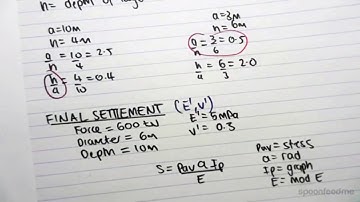 n= depth of
a=10m
n=4m
a/n = 10/4 = 2.5
n/a = 4/10 = 0.4
a=3m
n=6m
a/n = 3/6 = 0.5
n/a = 6/3 = 2.0
FINAL SETTLEMENT (E', v')
Force = 600 kN
Diameter = 6m
Depth = 10m
E' = 5mPa
v' = 0.3
S = Pav a Ip / E
Pav = stess
a = rad
Ip = graph
E = mod E
spoonfeedme